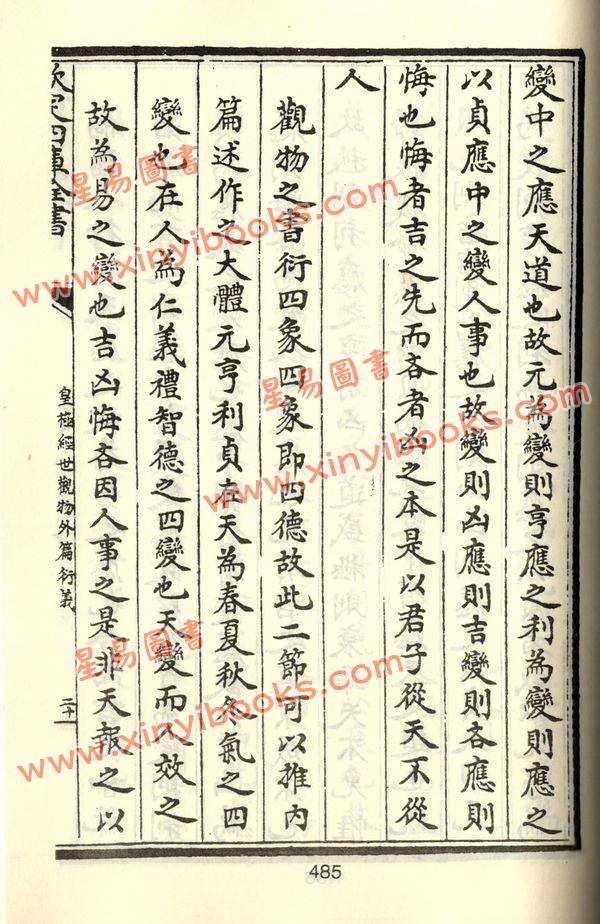 變中之應天道也故元為變則亨應之利為變則應之
以貞應中之變人事也故變則凶應則吉變則吝應則
悔也悔者吉之先而吝者凶之本是以君子從天不從
人
觀物之書衍四象四象即四德故此二節可以推內
篇述作之大體元亨利貞在天為春夏秋冬氣之四
變也在人為仁義禮智德之四變也天變而人效之
故為易之變也吉凶悔吝因人事之是非天報之以
欽定四庫全書
皇極經世觀物外篇衍義
二十
485
星易圖書
www.xinyibooks.com
星易圖書
www.xinyibooks.com
星易圖書
www.xinyibooks.com